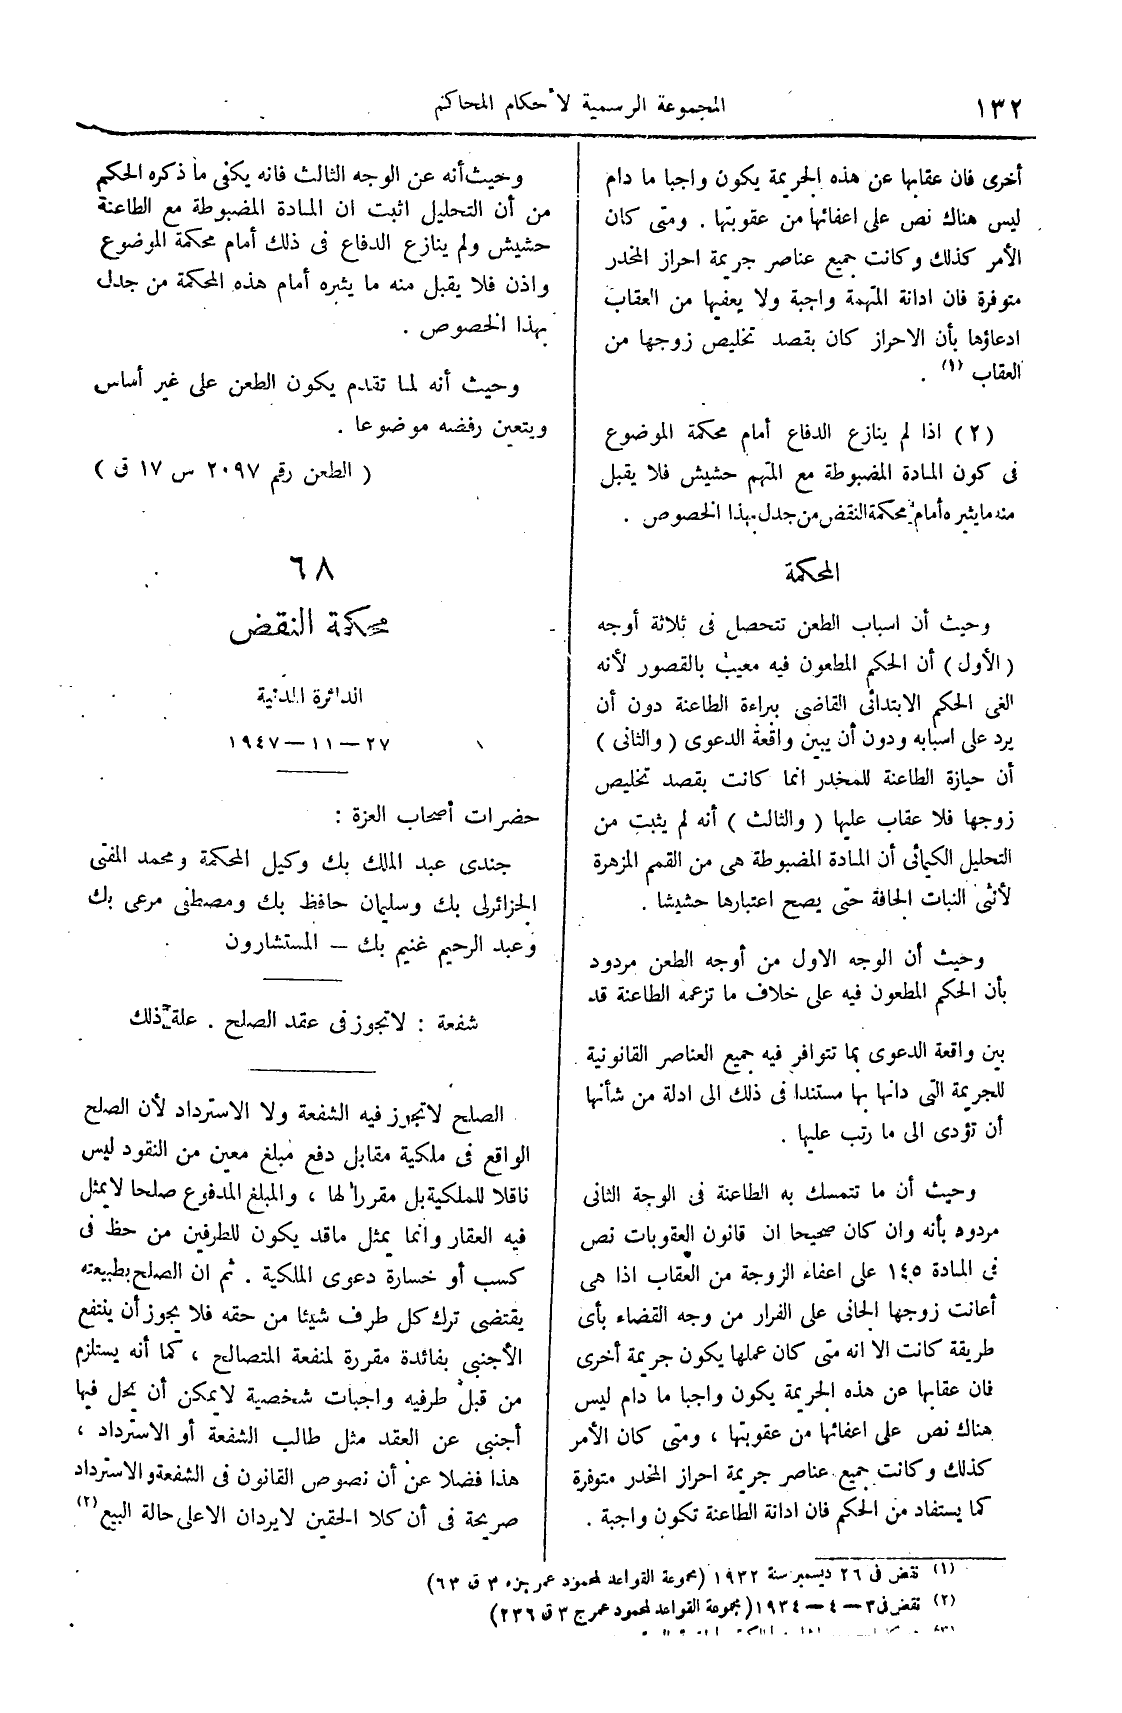 ١٣٢
المجموعة الرسمية لأحكام المحاكم
أخرى فان عقابها عن هذه الجريمة يكون واجبا ما دام
ليس هناك نص على اعفائها من عقوبتها . ومتى كان
الأمر كذلك وكانت جميع عناصر جريمة احراز المخدر
متوفرة فان ادانة المتهمة واجبة ولا يعفيها من العقاب
ادعاؤها بأن الاحراز كان بقصد تخليص زوجها من
العقاب (١) .
(٢) اذا لم ينازع الدفاع أمام محكمة الموضوع
فى كون المادة المضبوطة مع المتهم حشيش فلا يقبل
منه ما يثيره أمام محكمة النقض من جدل بهذا الخصوص .
المحكمة
وحيث أن اسباب الطعن تتحصل فى ثلاثة أوجه
(الأول) أن الحكم المطعون فيه معيب بالقصور لأنه
الغى الحكم الابتدائى القاضى ببراءة الطاعنة دون أن
يرد على اسبابه ودون أن يبين واقعة الدعوى (والثانى)
أن حيازة الطاعنة للمخدر انما كانت بقصد تخليص
زوجها فلا عقاب عليها (والثالث) أنه لم يثبت من
التحليل الكيمائى أن المادة المضبوطة هى من القمم المزهرة
لأنثى النبات الجافة حتى يصح اعتبارها حشيشا .
وحيث أن الوجه الاول من أوجه الطعن مردود
بأن الحكم المطعون فيه على خلاف ما تزعمه الطاعنة قد
بين واقعة الدعوى بما تتوافر فيه جميع العناصر القانونية
للجريمة التى دانها بها مستندا فى ذلك الى ادلة من شأنها
أن تؤدى الى ما رتب عليها .
وحيث أن ما تتمسك به الطاعنة فى الوجة الثانى
مردود بأنه وان كان صحيحا ان قانون العقوبات نص
فى المادة ١٤٥ على اعفاء الزوجة من العقاب اذا هى
أعانت زوجها الجانى على الفرار من وجه القضاء بأى
طريقة كانت الا انه متى كان عملها يكون جريمة أخرى
فان عقابها عن هذه الجريمة يكون واجبا ما دام ليس
هناك نص على اعفائها من عقوبتها ، ومتى كان الأمر
كذلك وكانت جميع عناصر جريمة احراز المخدر متوفرة
كما يستفاد من الحكم فان ادانة الطاعنة تكون واجبة .
وحيث أنه عن الوجه الثالث فانه يكفى ما ذكره الحكم
من أن التحليل اثبت ان المادة المضبوطة مع الطاعنة
حشيش ولم ينازع الدفاع فى ذلك أمام محكمة الموضوع
واذن فلا يقبل منه ما يثيره أمام هذه المحكمة من جدل
بهذا الخصوص .
وحيث أنه لما تقدم يكون الطعن على غير أساس
ويتعين رفضه موضوعا .
( الطعن رقم ٢٠٩٧ س ١٧ ق )
٦٨
محكمة النقض
الدائرة المدنية
٢٧ – ١١ – ١٩٤٧
حضرات أصحاب العزة :
جندى عبد المالك بك وكيل المحكمة ومحمد المفتى
الجزائرلى بك وسليمان حافظ بك ومصطفى مرعى بك
وعبد الرحيم غنيم بك – المستشارون
شفعة : لا تجوز فى عقد الصلح . علة ذلك
الصلح لا تجوز فيه الشفعة ولا الاسترداد لأن الصلح
الواقع فى ملكية مقابل دفع مبلغ معين من النقود ليس
ناقلا للملكية بل مقررا لها ، والمبلغ المدفوع صلحا لا يمثل
فيه العقار وانما يمثل ماقد يكون للطرفين من حظ فى
كسب أو خسارة دعوى الملكية . ثم ان الصلح بطبيعته
يقتضى ترك كل طرف شيئا من حقه فلا يجوز أن ينتفع
الأجنبي بفائدة مقررة لمنفعة المتصالح ، كما أنه يستلزم
من قبل طرفيه واجبات شخصية لا يمكن أن يحل فيها
أجنبي عن العقد مثل طالب الشفعة أو الاسترداد ،
هذا فضلا عن أن نصوص القانون فى الشفعة والاسترداد
صريحة فى أن كلا الحقين لا يردان الا على حالة البيع (٢)
(١) نقض فى ٢٦ ديسمبر سنة ١٩٣٢ (مجموعة القواعد لمحمود عمر جزء ٣ ق ٦٣)
(٢) نقض فى ٣ – ٤ – ١٩٣٤ (مجموعة القواعد لمحمود عمر ج ٣ ق ٢٣٦)